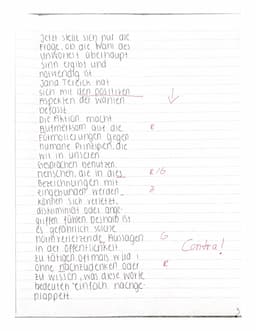 Jetzt stellt sich nur die
Frage, ob die Wahl des
Unwortes überhaupt
Sinn ergibt und
notwendig ist
Jana Tereick hat
sich mit den positiven
Aspekten der Wahlen
befasst
Die Aktion macht
Aufmerksam auf die R
Formulierungen gegen
humane Prinzipien, die
wir in unseren
Gesprächen benutzen.
Menschen, die in dies R/G
Bezeichnungen mit
eingebunden werden, Z
können sich verletzt,
diskriminiert oder ange-
griffen fühlen Deshalb ist
es gefährlich solche
Aussagen G
in der Öffentlichkeit
zu tätigen oftmals wird Contra!
ohne nachzudenken oder R
zu wissen, was diese Worte
bedeuten einfach nachge-
plappert